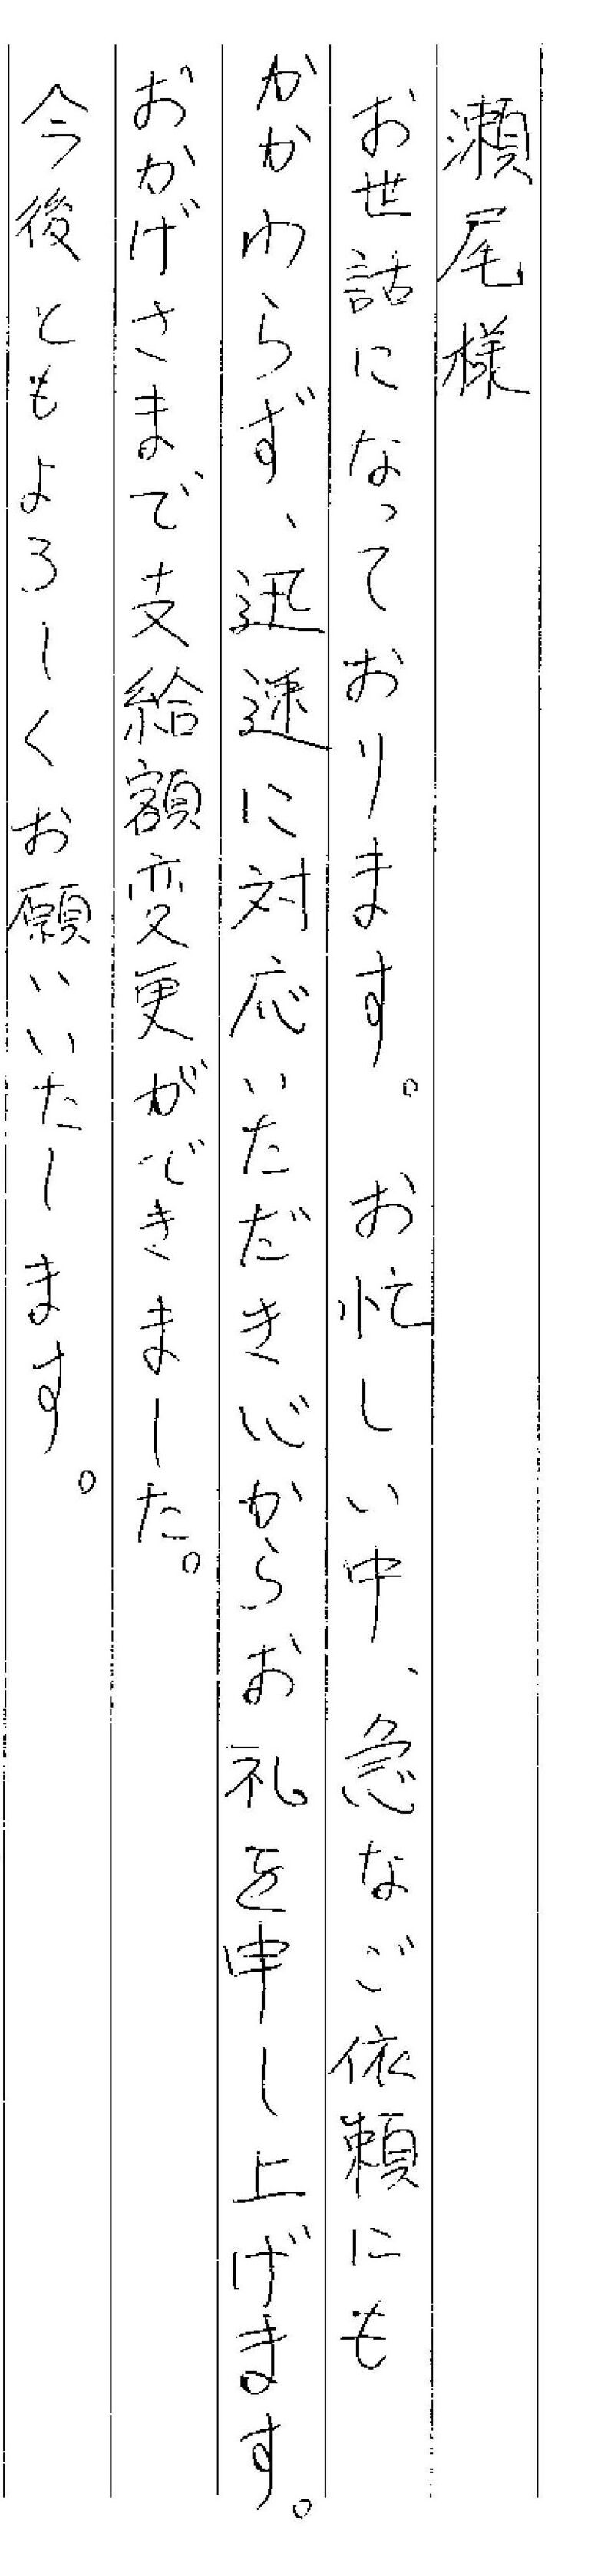 瀬尾様
お世話になっております。お忙しい中、急なご依頼にも
かかわらず、迅速に対応いただき心からお礼を申し上げます。
おかげさまで支給額変更ができました。
今後ともよろしくお願いいたします。